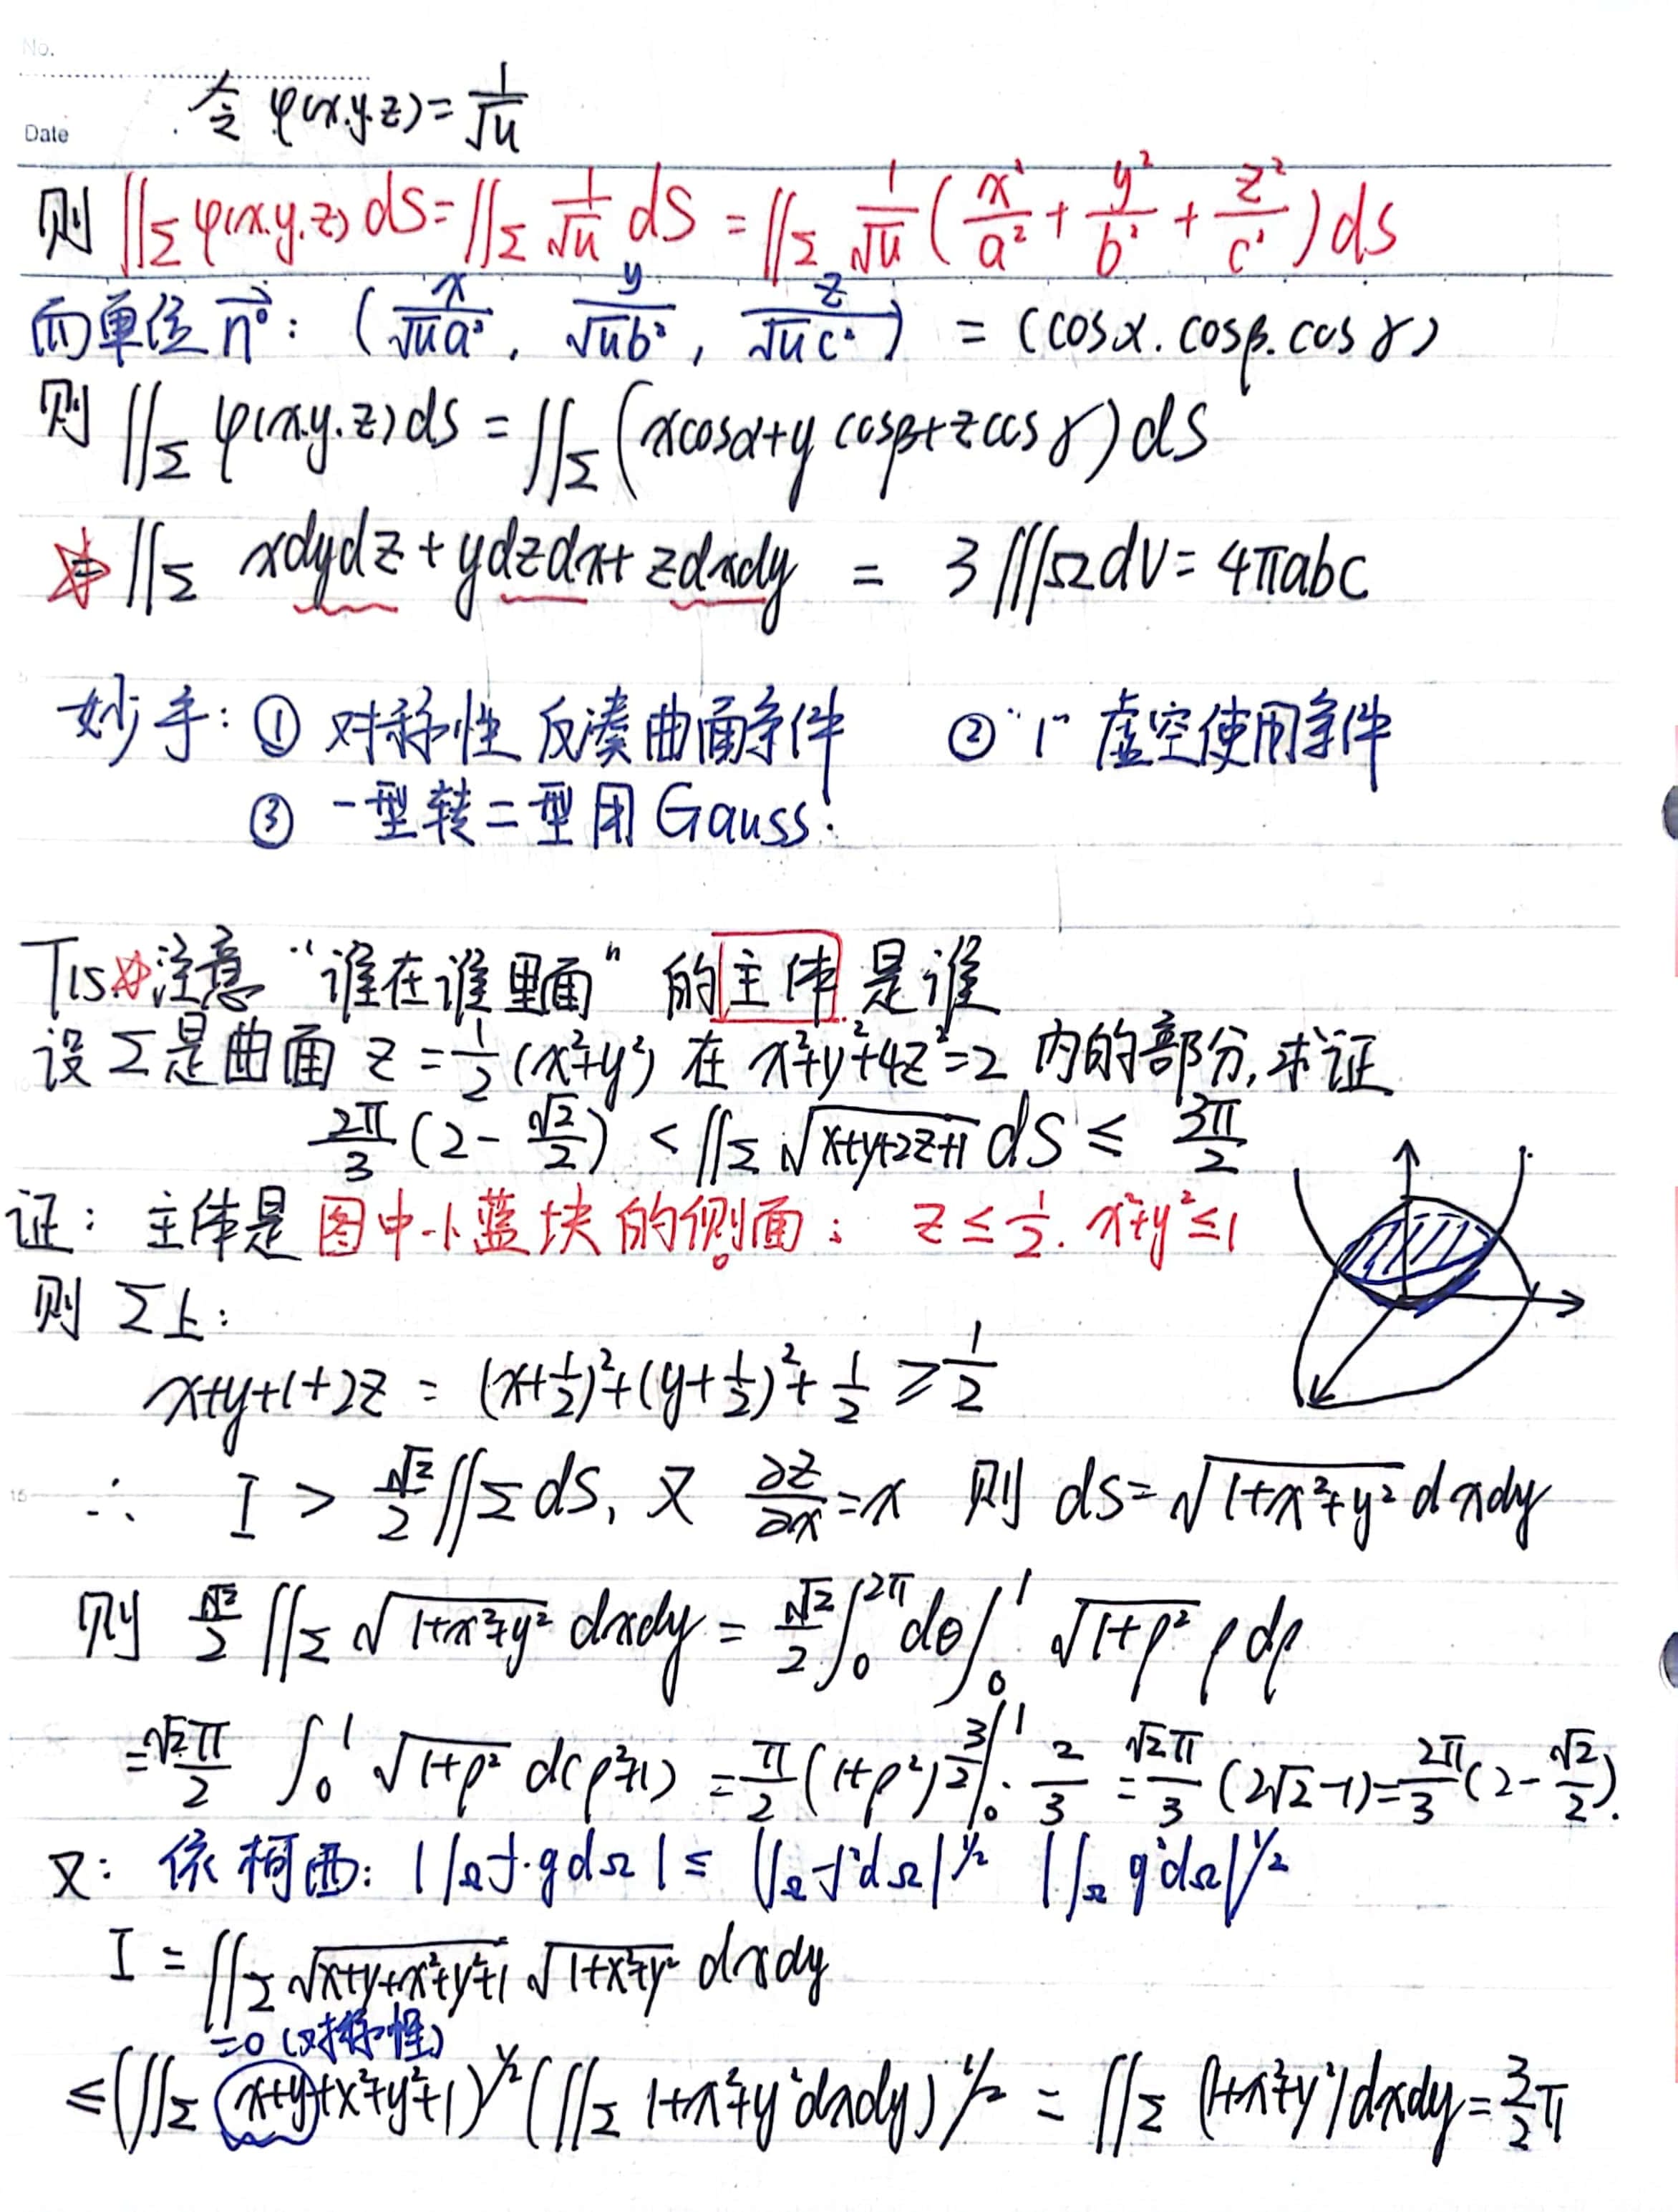 No.
Date
令 φ(x.y.z)=1/√u
则 ∬Σ φ(x.y.z) dS=∬Σ 1/√u dS = ∬Σ 1/√u (x²/a² + y²/b² + z²/c²) dS
而单位 n⃗°: (x/√u a², y/√u b², z/√u c²) = (cosα. cosβ. cosγ)
则 ∬Σ φ(x.y.z) dS = ∬Σ (xcosα+y cosβ+zcosγ) dS
☆ = ∬Σ xdydz + ydzdx + zdxdy = 3∭Ω dV = 4πabc
妙手: ① 对称性 反凑曲面条件 ② "1" 虚空使用条件
③ 一型转二型用 Gauss.
T15 ☆注意 "谁在谁里面" 的主体是谁
设Σ是曲面 z=1/2(x²+y²) 在 x²+y²+4z²=2 内的部分,求证
2π/3 (2-√2/2) < ∬Σ √(x+y+2z+1) dS ≤ 3π/2
证: 主体是图中小蓝块的侧面: z≤1/2. x²+y²≤1
则 Σ上:
x+y+1+2z = (x+1/2)²+(y+1/2)²+1/2 ≥ 1/2
∴ I > √2/2 ∬Σ dS, 又 ∂z/∂x=x 则 dS=√(1+x²+y²) dxdy
则 √2/2 ∬Σ √(1+x²+y²) dxdy = √2/2 ∫₀^2π dθ ∫₀^1 √(1+ρ²) ρ dρ
=√2π/2 ∫₀^1 √(1+ρ²) d(ρ²+1) = π/2 (1+ρ²)^3/2 |₀^1 · 2/3 = √2π/3 (2√2-1)=2π/3 (2-√2/2).
又: 依柯西: |∫Ω f·g dΩ| ≤ |∫Ω f²dΩ|^1/2 |∫Ω g²dΩ|^1/2
I = ∬Σ √(x+y+x²+y²+1) √(1+x²+y²) dxdy
=0 (对称性)
≤(∬Σ x+y+x²+y²+1)^1/2 (∬Σ 1+x²+y² dxdy)^1/2 = ∬Σ (1+x²+y²)dxdy=3/2 π